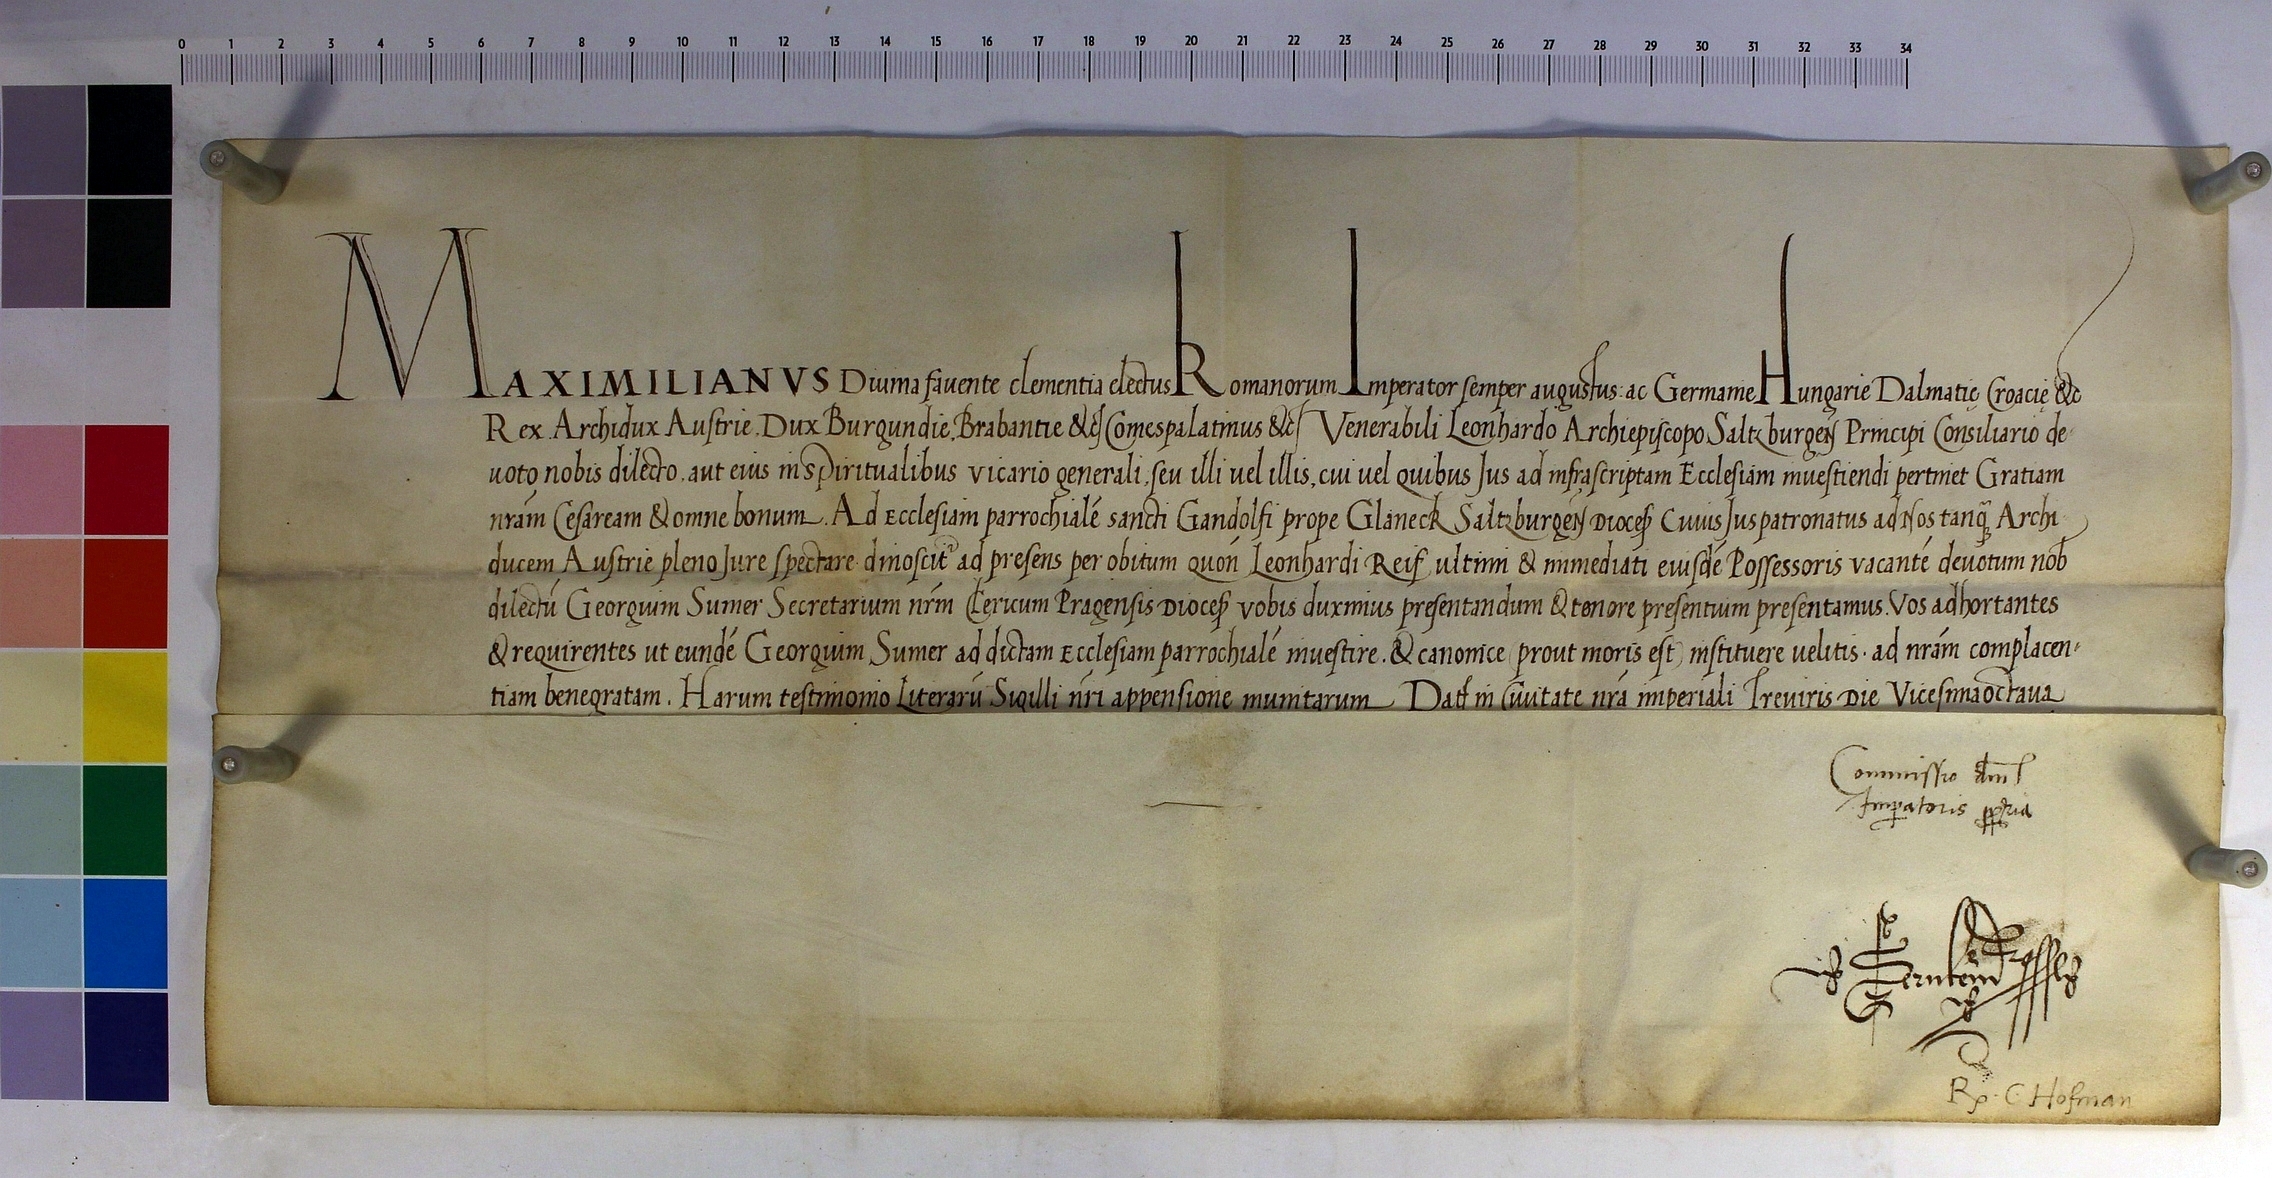 0 1 2 3 4 5 6 7 8 9 10 11 12 13 14 15 16 17 18 19 20 21 22 23 24 25 26 27 28 29 30 31 32 33 34
MAXIMILIANVS Diuina fauente clementia electus Romanorum Imperator semper augustus ac Germanie Hungarie Dalmatię Croacię &c
Rex Archidux Austrie. Dux Burgundie, Brabantie &c Comespalatinus &c Venerabili Leonhardo Archiepiscopo Saltzburgeñ Principi Consiliario de
uoto nobis dilecto. aut eius in spiritualibus vicario generali, seu illi uel illis, cui uel quibus Jus ad infrascriptam Ecclesiam inuestiendi pertinet Gratiam
nrãm Cesaream & omne bonum. Ad Ecclesiam parrochialẽ sancti Gandolfi prope Glaneck Saltzburgeñ Dioceß Cuius Juspatronatus ad Nos tanq̃ Archi
ducem Austrie pleno Jure spectare dinoscit̃ ad presens per obitum quoñ Leonhardi Reif ultimi & immediati eiusdẽ Possessoris vacantẽ deuotum nob
dilectũ Georgium Sumer Secretarium nr̃m Clericum Pragensis Dioceß vobis duximus presentandum & tenore presentium presentamus. Vos adhortantes
& requirentes ut eundẽ Georgium Sumer ad dictam Ecclesiam parrochialẽ inuestire. & canonice (prout moris est) instituere uelitis. ad nrãm complacen-
tiam benegratam. Harum testimonio Literarũ Sigilli nr̃i appensione munitarum Dat in Ciuitate nrã imperiali Treuiris Die Vicesimaoctaua
Commissio dm̃
Impatoris ppria
Serntein
Rᵃ. C Hofman